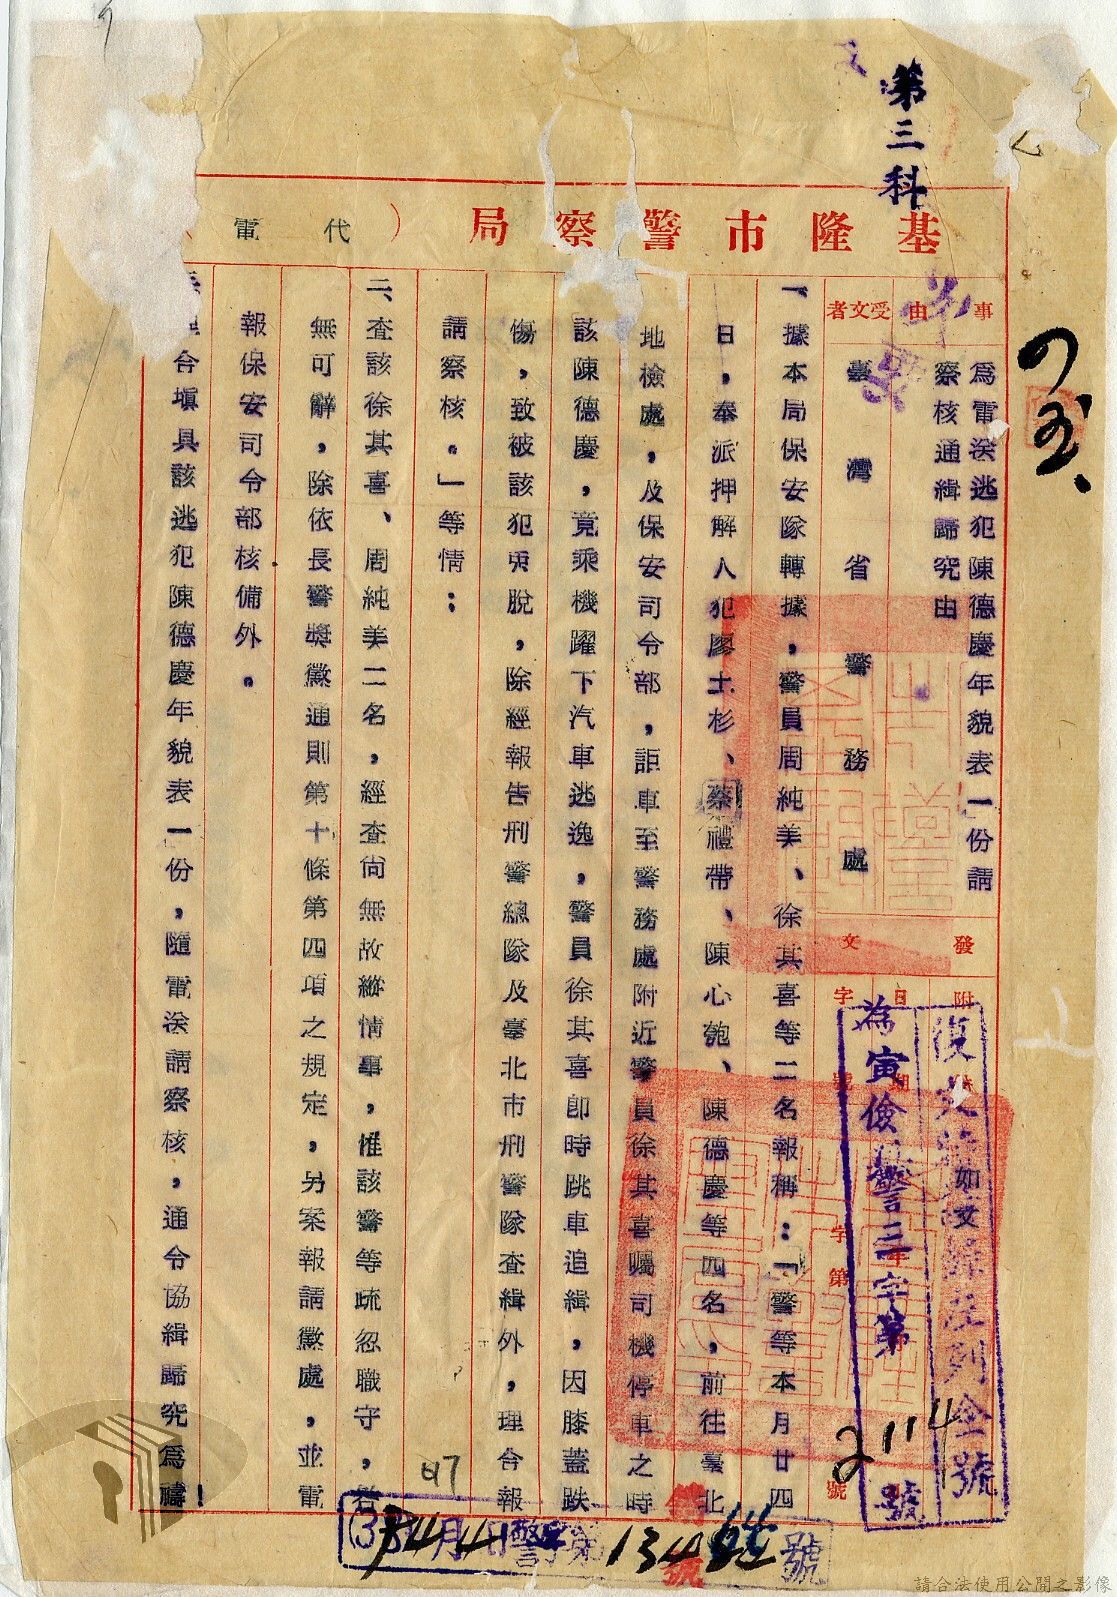 第三科
基隆市警察局（代電
事由
為電送逃犯陳德慶年貌表一份請
察核通緝歸究由
受文者
臺灣省警務處
發文
附
日
字
字第
號
復文請如文辭左列全號
為寅儉警三字第2114號
一、據本局保安隊轉據，警員周純美、徐其喜等二名報稱：「警等本月廿四
日，奉派押解人犯廖土杉、蔡禮帶、陳心匏、陳德慶等四名，前往臺北
地檢處，及保安司令部，詎車至警務處附近警員徐其喜囑司機停車之時
該陳德慶，竟乘機躍下汽車逃逸，警員徐其喜即時跳車追緝，因膝蓋跌
傷，致被該犯兎脫，除經報告刑警總隊及臺北市刑警隊查緝外，理合報
請察核。」等情：
二、查該徐其喜、周純美二名，經查尚無故縱情事，惟該警等疏忽職守，咎
無可辭，除依長警獎懲通則第十條第四項之規定，另案報請懲處，並電
報保安司令部核備外。
合填具該逃犯陳德慶年貌表一份，隨電送請察核，通令協緝歸究為禱！
47
月 日警 第 號
請合法使用公開之影像